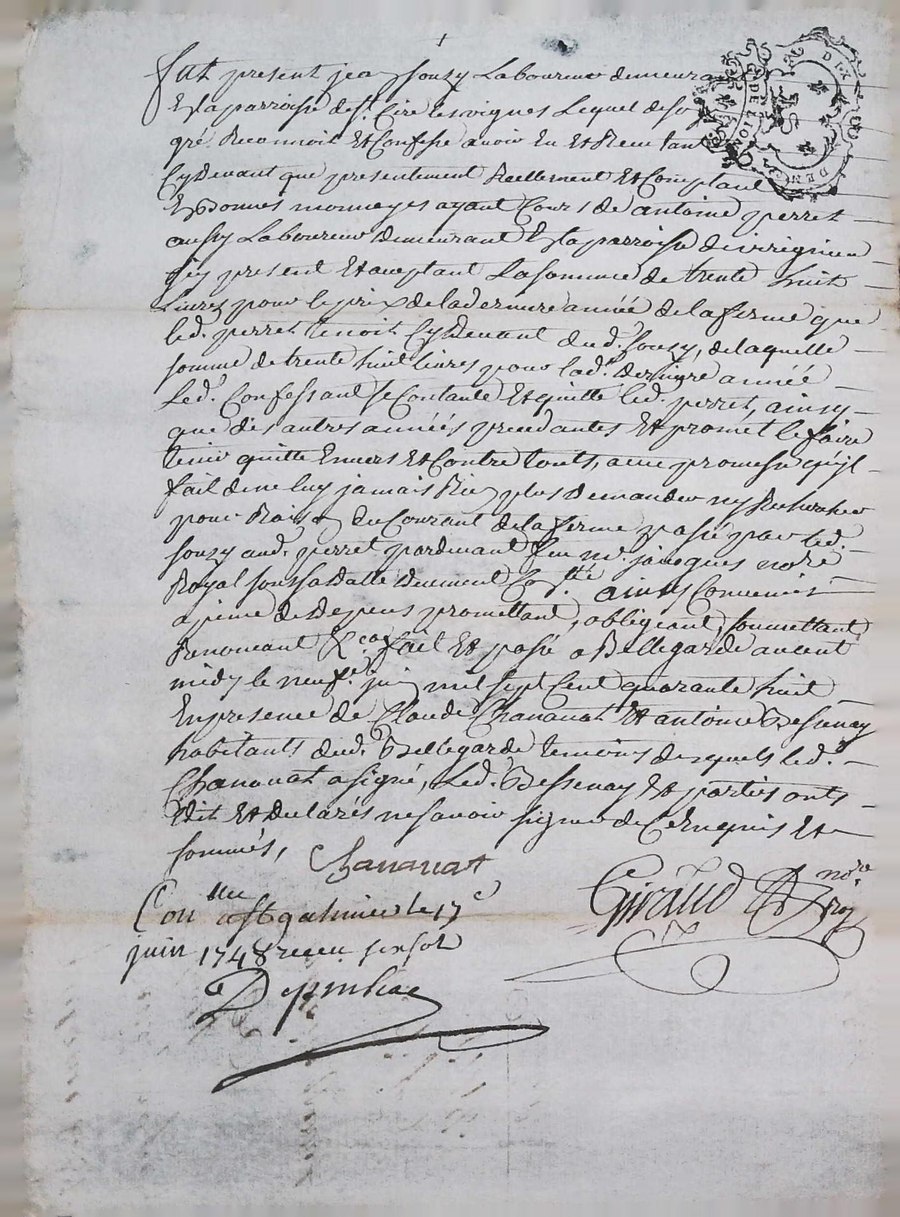 fut present jean souzy Laboureur demeurant
En la parroisse de st. Cire les vignes Lequel de son
gré Reconnoit Et Confesse avoir Eu Et Receu tant
Cydevant que presentement Reellement Et Comptant
En bonnes monnoyes ayant Cours de antoine perret
aussy Laboureur demeurant En la parroisse de
icy present Et aceptant La somme de trente huit
Livres pour le prix de la derniere année de la ferme que
led. perret tenoit Cydevant dud. souzy, de laquelle
somme de trente huit livres pour lad. derniere année
Led. Confessant se Contante Et quitte led. perret, ainsy
que des autres années precedantes Et promet le faire
tenir quitte Envers Et Contre touts, avec promesse qu'il
fait de ne luy jamais Rien plus demander ny Rechercher
pour Raison du Courant de la ferme passé par led.
souzy aud. perret pardevant feu me. jacques nore
Royal sous sa datte deument ainsy Convenus
a peine de depens promettant, obligeant, soumettant
Renoncant &c. fait Et passé a Bellegarde avant
midy le neufe. juin mil sept Cent quarante huit
En presence de Claude Chananat Et antoine Bessenay
habitants dud. Bellegarde temoins desquels led.
Chananat a signé, Led. Bessenay Et parties onts
dit Et declarés ne savoir signer de Ce Enquis Et
sommés,
Chananat
Giraud nore roy
Conlle a st galmier le 17e
juin 1748 receu six sols
Depinhac
DIX DEN
G. DE LION